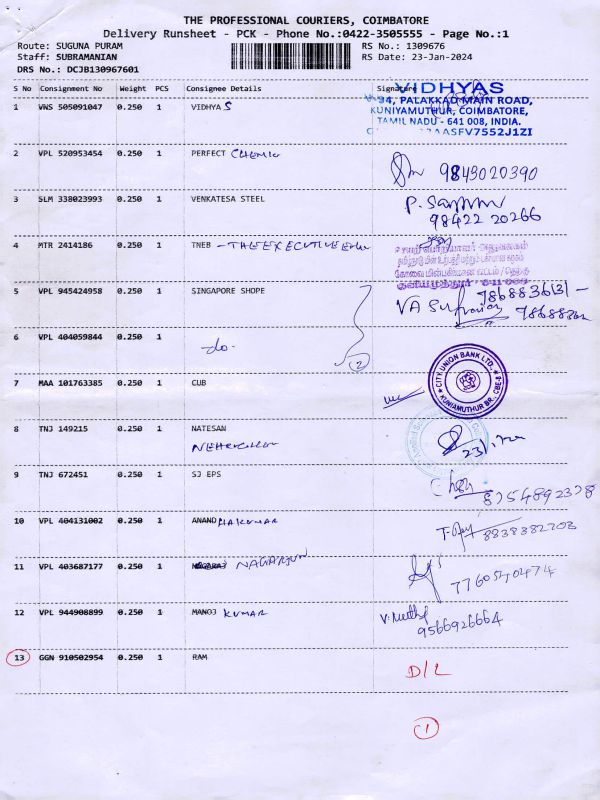 THE PROFESSIONAL COURIERS, COIMBATORE
Delivery Runsheet - PCK - Phone No.:0422-3505555 - Page No.:1
Route: SUGUNA PURAM RS No.: 1309676
Staff: SUBRAMANIAN RS Date: 23-Jan-2024
DRS No.: DCJB130967601
S No Consignment No Weight PCS Consignee Details Signature
1 VNS 505091047 0.250 1 VIDHYAS
VIDHYAS
94, PALAKKAD MAIN ROAD,
KUNIYAMUTHUR, COIMBATORE,
TAMIL NADU - 641 008, INDIA.
2 VPL 520953454 0.250 1 PERFECT 9843020390
3 SLM 338023993 0.250 1 VENKATESA STEEL
98422 20266
4 MTR 2414186 0.250 1 TNEB - THE EXECUTIVE
5 VPL 945424958 0.250 1 SINGAPORE SHOPE
6 VPL 404059844 0.250 1 -do- 2
7 MAA 101763385 0.250 1 CUB
CITY UNION BANK LTD.,
KUNIAMUTHUR BR., CBE-8
8 TNJ 149215 0.250 1 NATESAN
9 TNJ 672451 0.250 1 SJ EPS
8754892378
10 VPL 404131002 0.250 1 ANAND
8838382703
11 VPL 403687177 0.250 1 NAGARJUN
12 VPL 944908899 0.250 1 MANOJ KUMAR
9566926664
13 GGN 910502954 0.250 1 RAM D/L
1